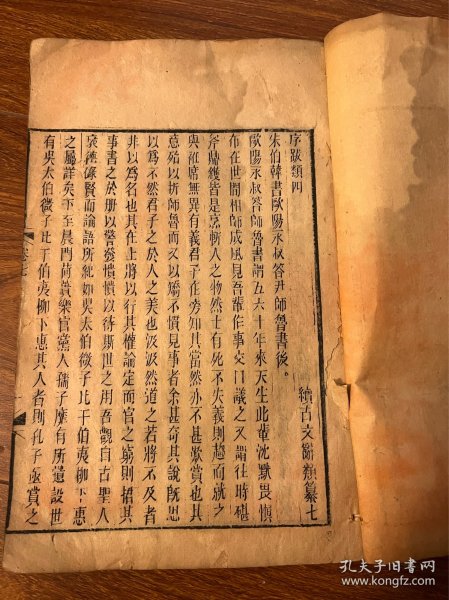 續古文辭類纂七
序跋類四
朱伯韓書歐陽永叔答尹師魯書後。
歐陽永叔答師魯書謂五六十年來天生此輩沈默畏慎
布在世間相師成風見吾輩作事交口議之又謂往時砧
斧鼎鑊皆是烹斬人之物然士有死不失義則趨而就之
與袵席無異有義君子在旁知其當然亦不甚歎賞也其
意殆以折師魯而又以矯不慣見事者余甚奇其說旣思
以爲不然君子之於人之美也汲汲然道之若將不及者
非以爲名也其在上將以行其權論定而官之窮則搢其
事書之於冊以警憒憒以待斯世之用吾觀自古聖人
褒德錄賢而論語所紀如吳太伯微子比干伯夷柳下惠
之屬詳矣下至晨門荷蕢樂官黨人孺子靡有所遺設世
有吳太伯微子比干伯夷柳下惠其人者則孔子亟賞之
卷七
孔夫子旧书网
www.kongfz.com